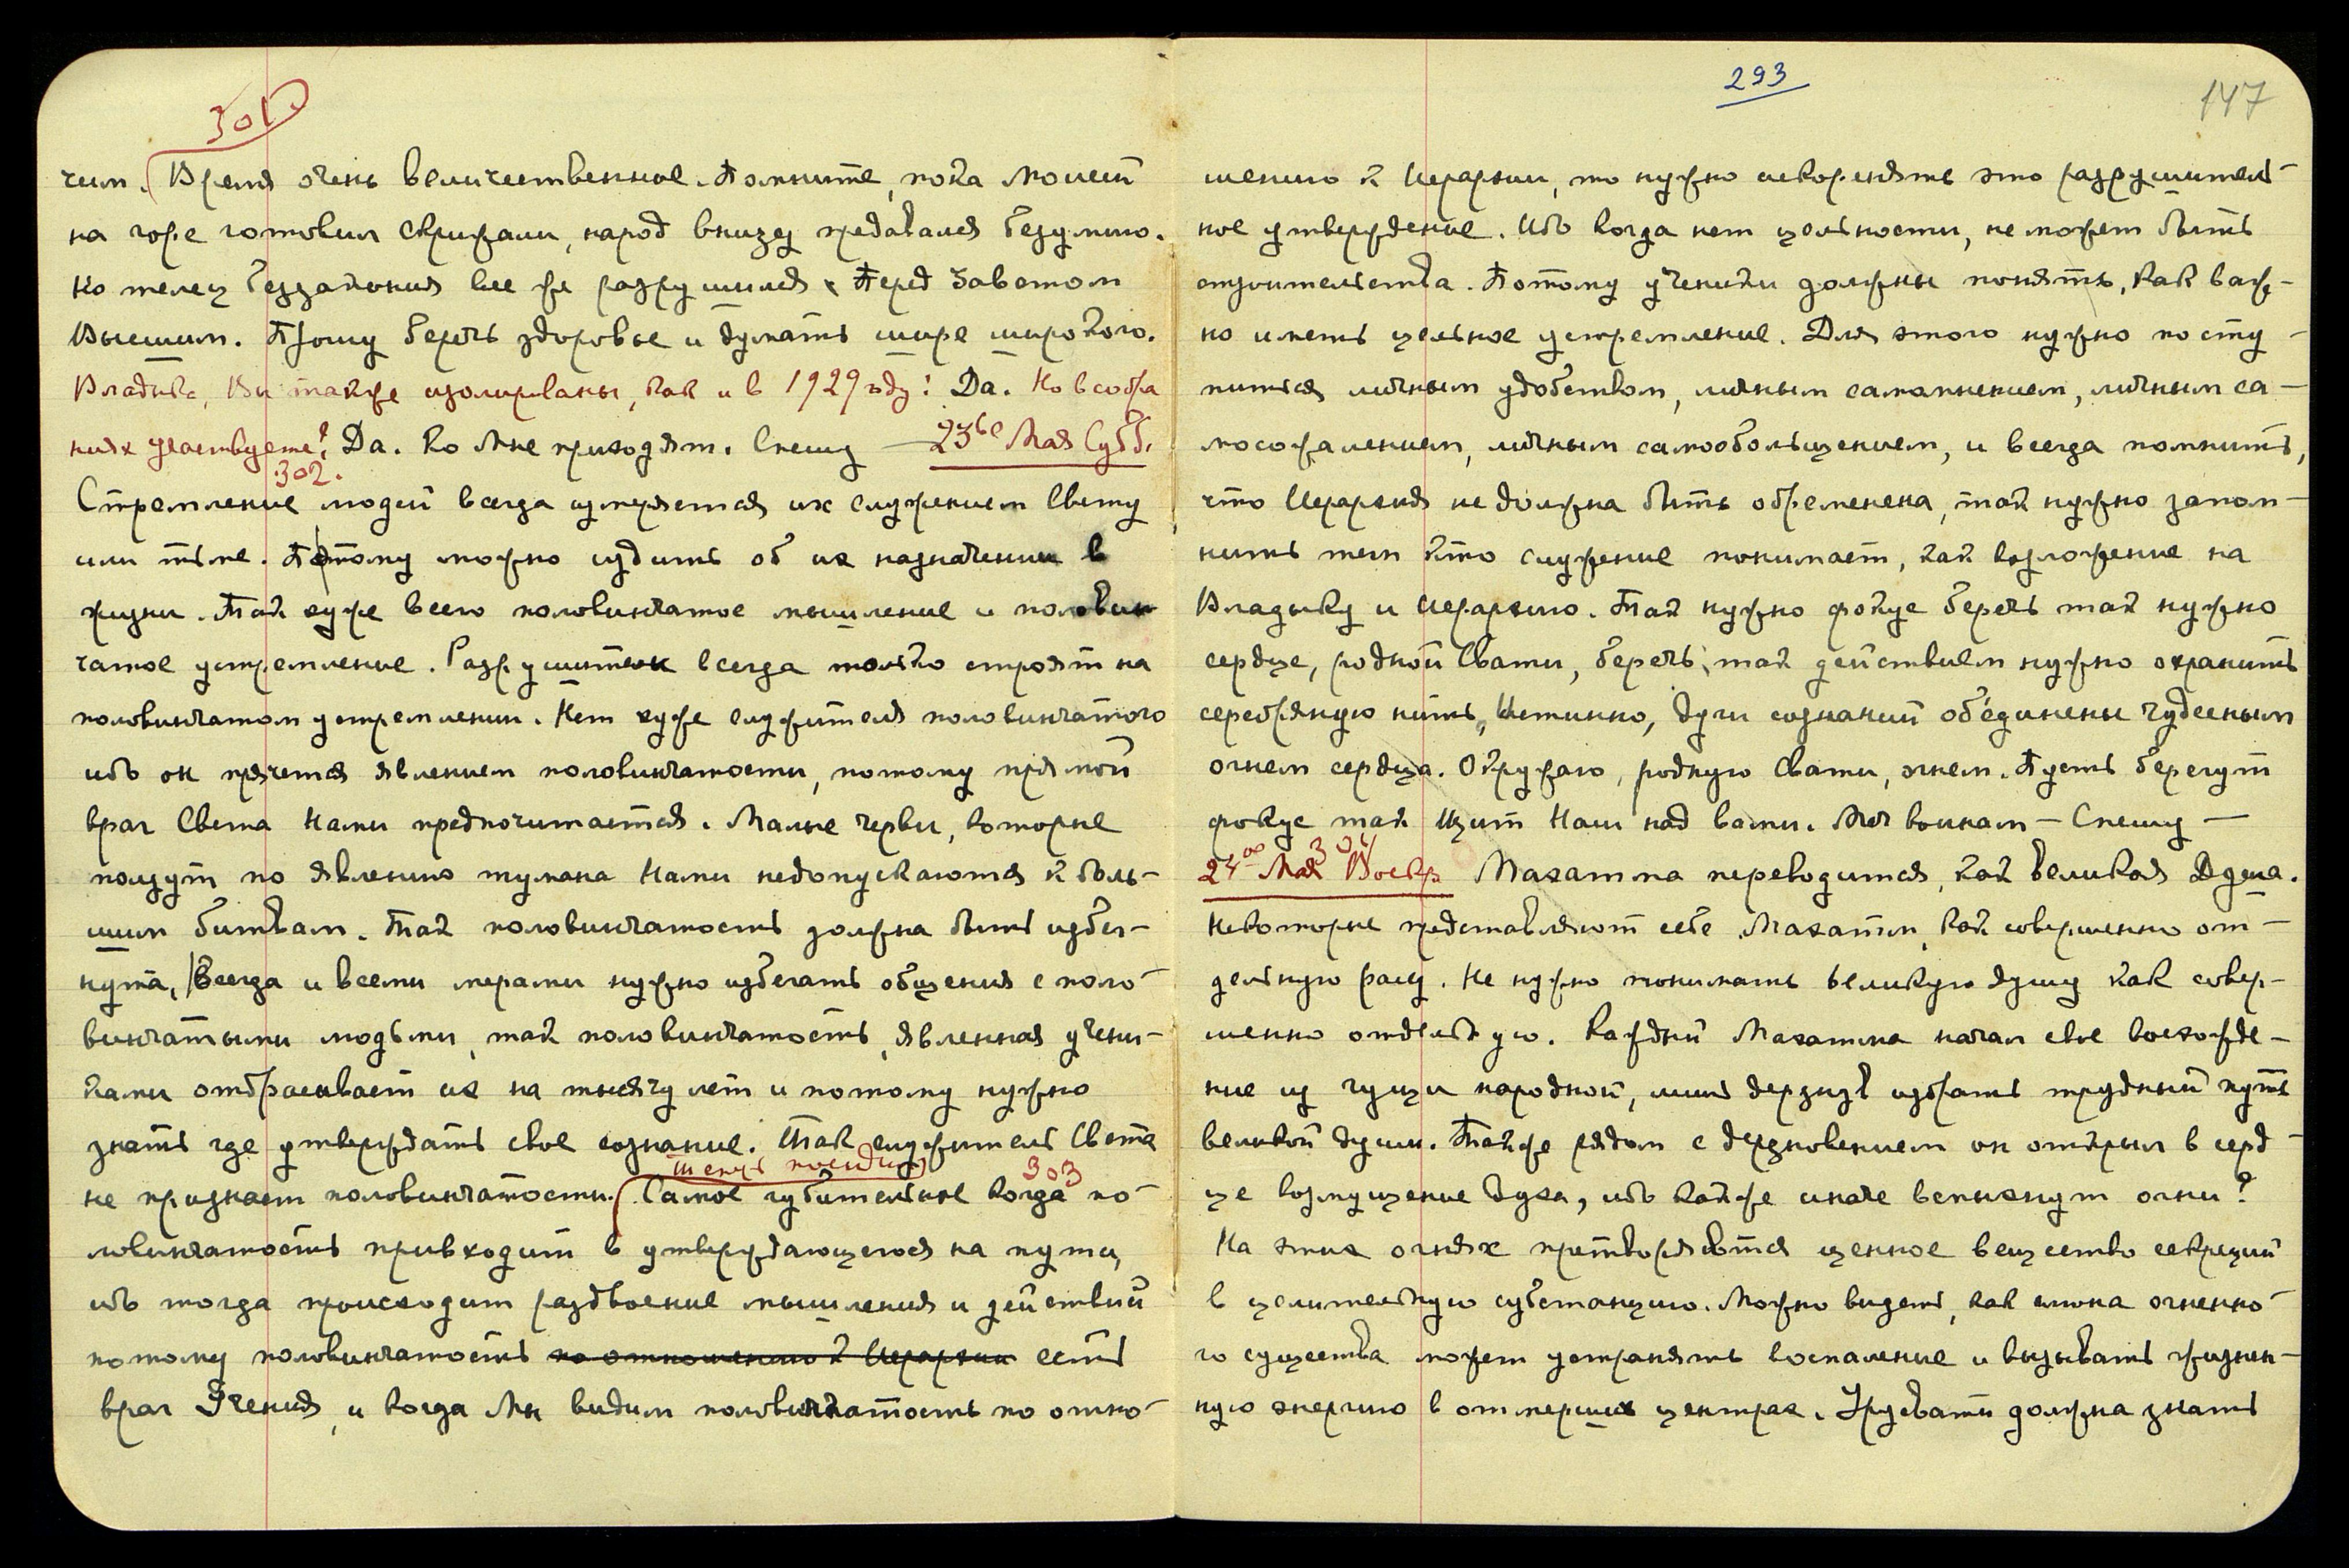 301
чим. Время очень величественное. Помните, пока Моисей
на горе готовил скрижали, народ внизу предавался безумию.
Но телец беззакония все же разрушился перед Заветом
Высшим. Прошу беречь здоровье и думать шире широкого.
Владыка, Вы также изолированы, как и в 1929 году? Да. Но в собра
ниях участвуете? Да. Ко Мне приходят. Спешу — 23ье Мая Субб.
302.
Стремление людей всегда измеряется их служением Свету
или тьме. Потому можно судить об их назначении в
жизни. Так хуже всего половинчатое мышление и половин
чатое устремление. Разрушители всегда только строят на
половинчатом устремлении. Нет хуже служителя половинчатого
ибо он прячется явлением половинчатости, потому прямой
враг Света Нами предпочитается. Малые черви, которые
ползут по явлению тумана Нами недопускаются к боль-
шим битвам. Так половинчатость должна быть избег-
нута, Всегда и всеми мерами нужно избегать общения с поло-
винчатыми людьми, так половинчатость, явленная учени-
ками отбрасывает их на тысячу лет и потому нужно
знать где утверждать свое сознание. Так служитель Света
не признает половинчатости. Самое губительное когда по-
303
ловинчатость привходит в утверждающегося на пути,
ибо тогда происходит раздвоение мышления и действий
потому половинчатость по отношению к Иерархии есть
враг Учения, и когда Мы видим половинчатость по отно-
293
147
шению к Иерархии, то нужно искоренять это разрушитель-
ное утверждение. Ибо когда нет цельности, не может быть
строительства. Потому ученики должны понять, как важ-
но иметь цельное устремление. Для этого нужно посту-
питься личным удобством, личным самомнением, личным са-
мосожалением, личным самообольщением, и всегда помнить,
что Иерархия не должна быть обременена, так нужно запом-
нить тем кто служение понимает, как возложение на
Владыку и Иерархию. Так нужно фокус беречь так нужно
сердце, родной Свати, беречь, так действием нужно охранить
серебряную нить, Истинно, духи сознаний объединены чудесным
огнем сердца. Окружаю, родную Свати, огнем. Пусть берегут
фокус так Щит Наш над вами. Меч воинам — Спешу —
304
24ое Мая Воскр. Махатма переводится, как великая Душа.
Некоторые представляют себе Махатм, как совершенно от-
дельную расу. Не нужно понимать великую душу как совер-
шенно отдельную. Каждый Махатма начал свое восхожде-
ние из гущи народной, лишь дерзнув избрать трудный путь
великой души. Также рядом с дерзновением он открыл в серд-
це возмущение духа, ибо как же иначе вспыхнут огни?
На этих огнях претворяются ценное вещество секреций
в целительную субстанцию. Можно видеть, как слюна огненно-
го существа может устранять воспаление и вызывать жизнен-
ную энергию в отмерших центрах. Урусвати должна знать